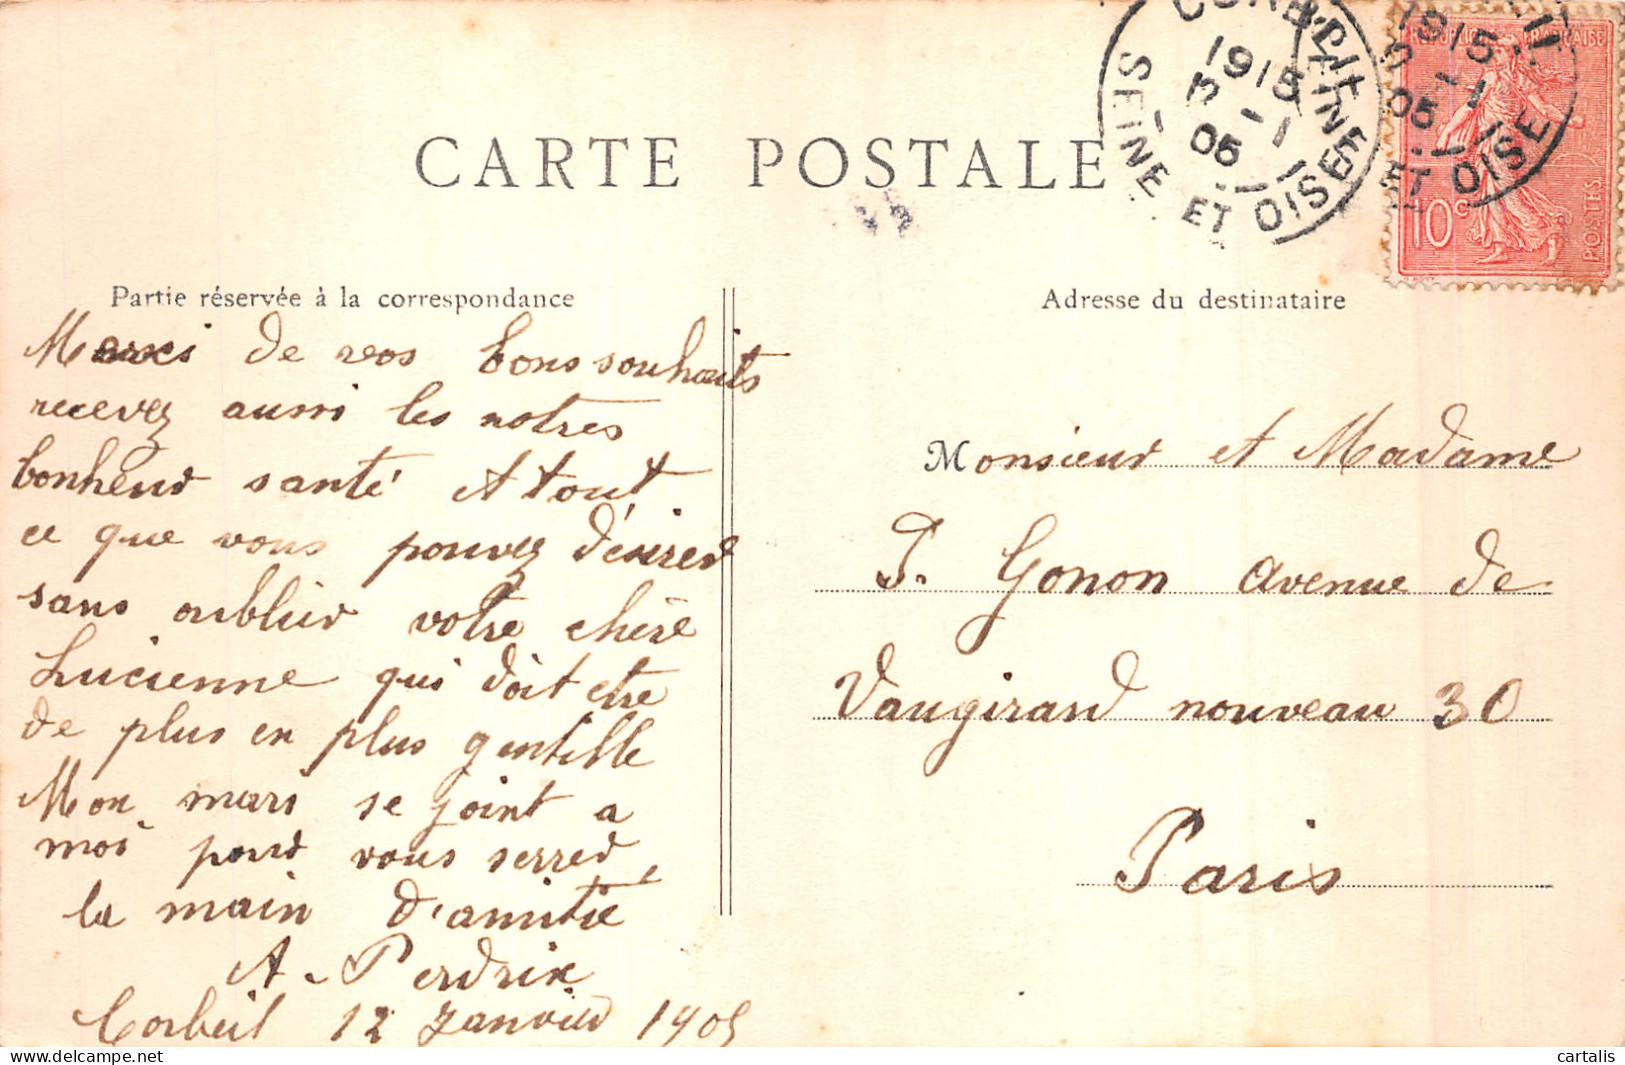 CARTE POSTALE
CORBEIL
1915
12 -1
05
SEINE ET OISE
1915
-1
05
SEINE ET OISE
REPUBLIQUE FRANÇAISE
10c
POSTES
Partie réservée à la correspondance
Merci de vos bons souhaits
recevez aussi les notres
bonheur santé et tout
ce que vous pouvez désirer
sans oublier votre chère
Lucienne qui doit etre
de plus en plus gentille
Mon mari se joint a
moi pour vous serrer
la main d'amitié
A. Perdrix
Corbeil 12 Janvier 1905
Adresse du destinataire
Monsieur et Madame
P. Gonon avenue de
Vaugirard nouveau 30
Paris
cartalis